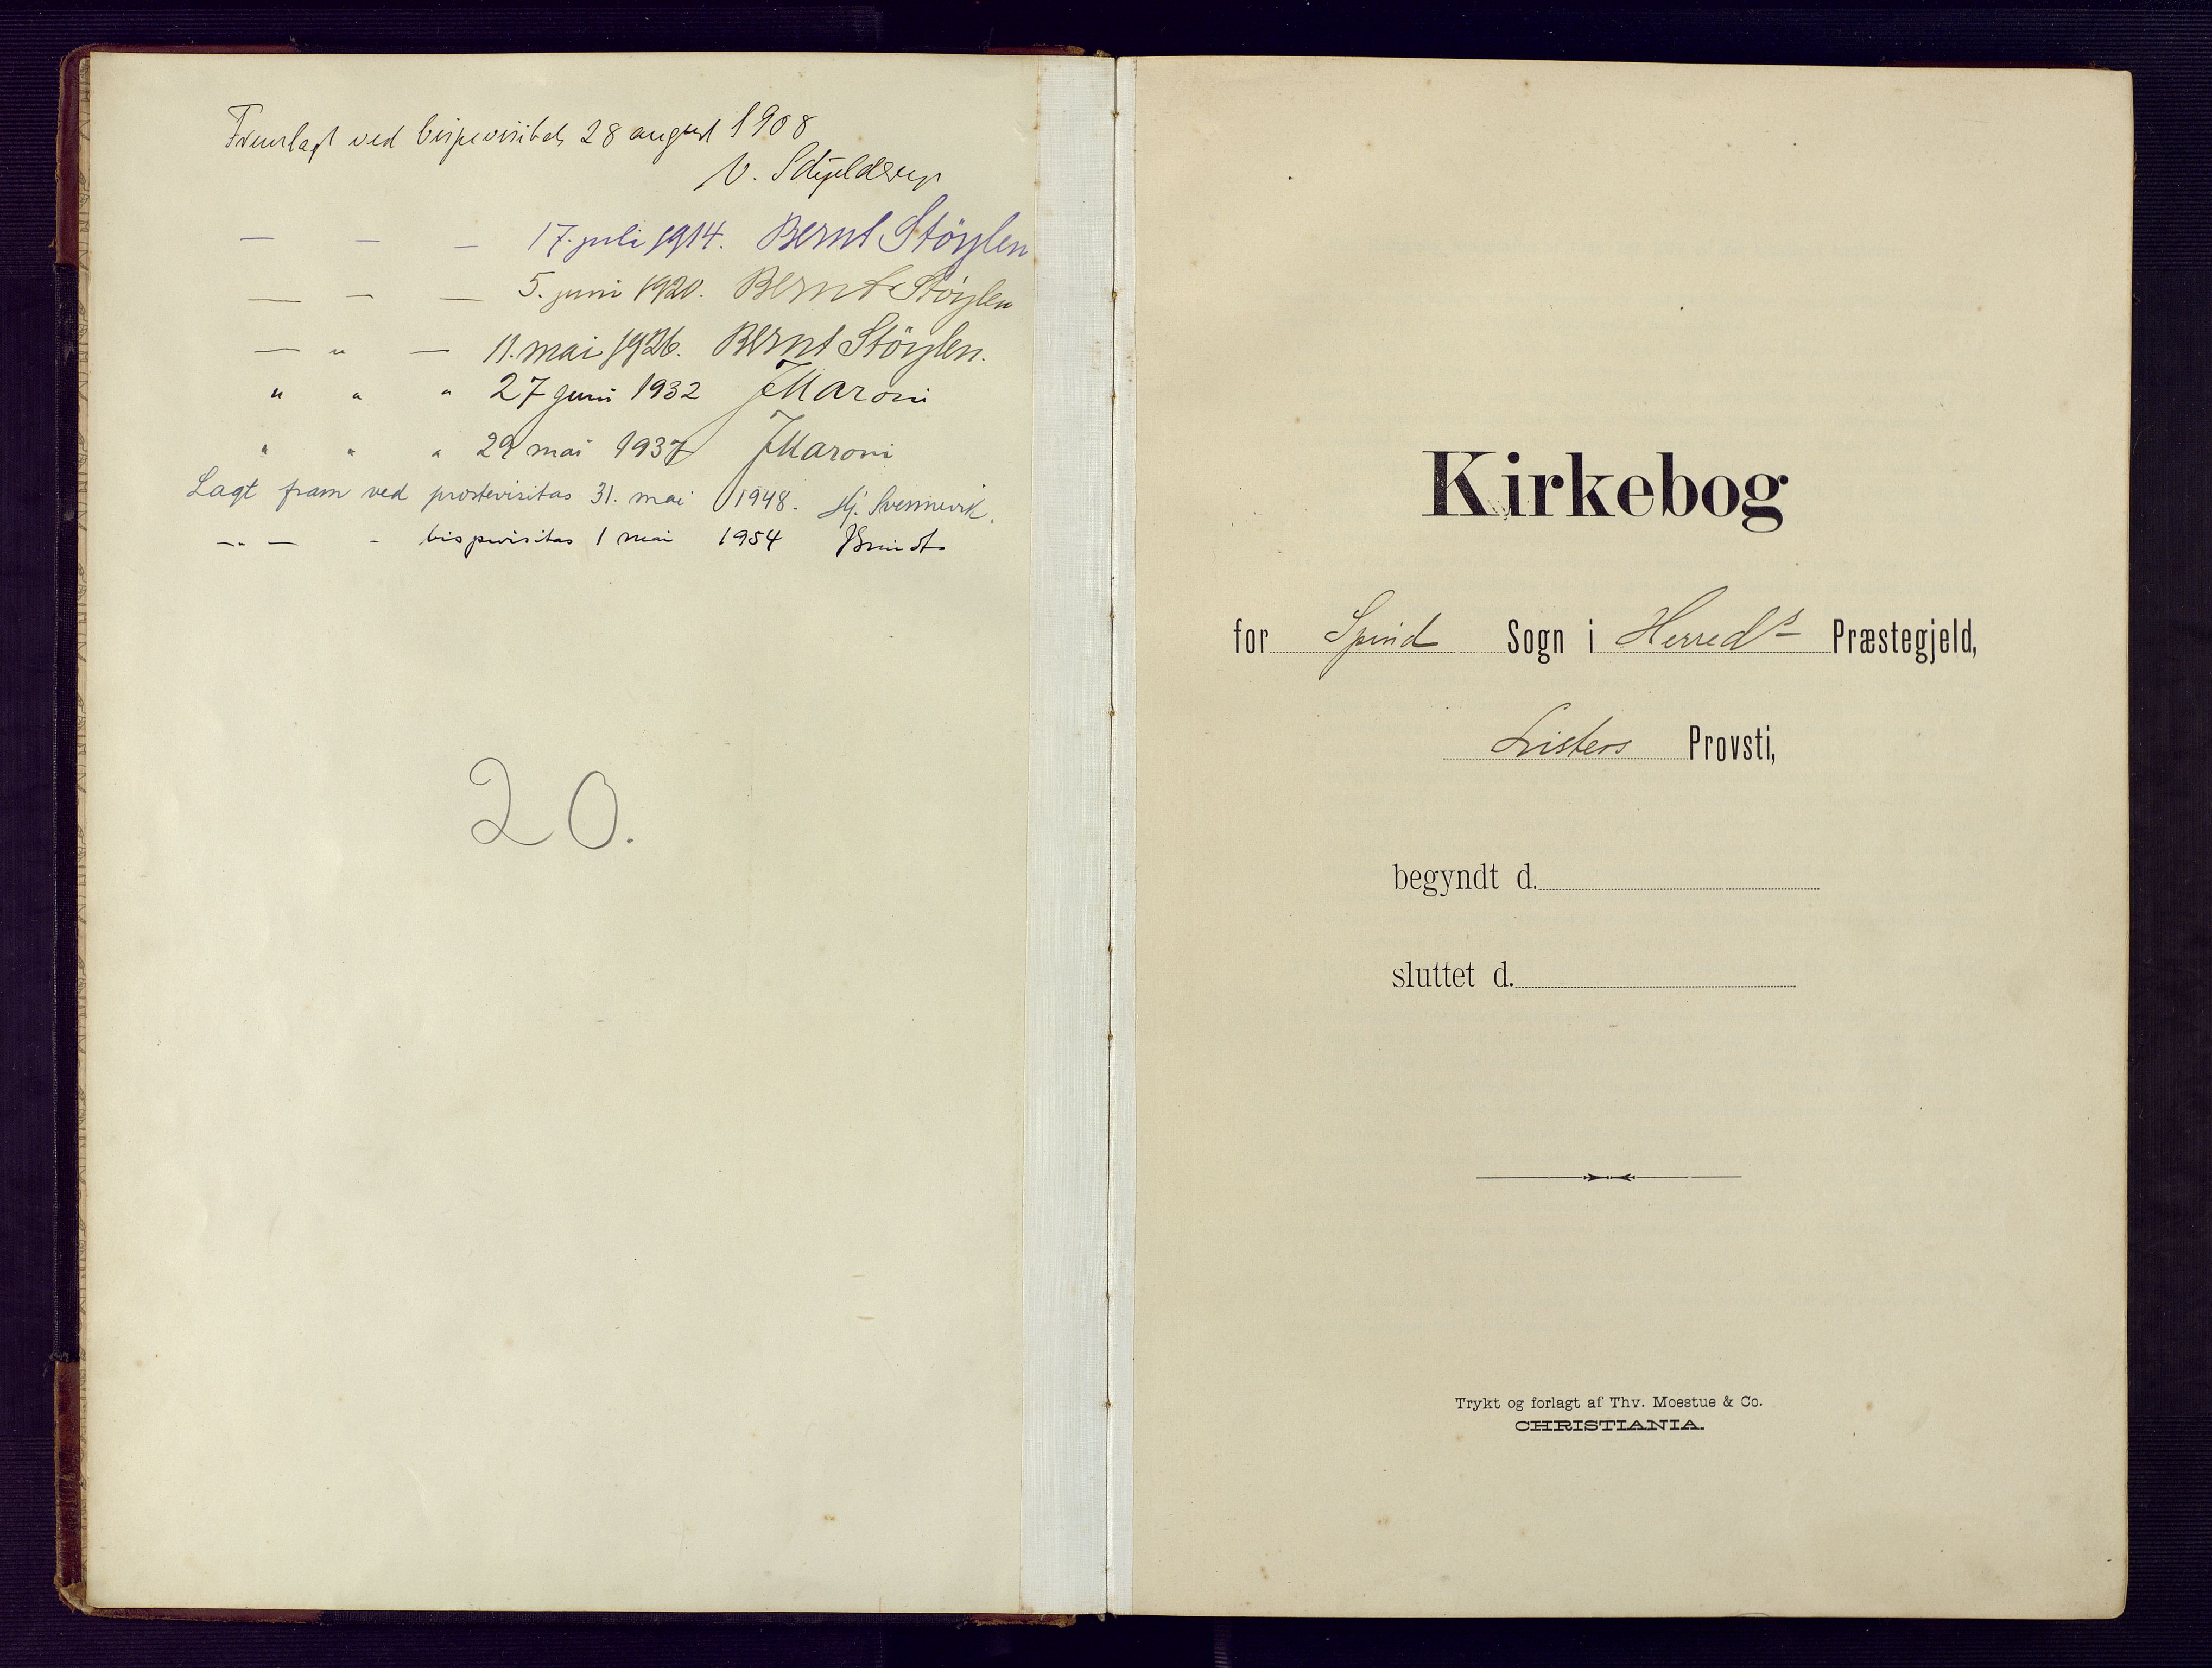 Fremlagt ved bispevisitats 28 august 1908
V. Schjelderup
— — — 17. juli 1914. Bernt Stöylen
— — — 5. juni 1920. Bernt Stöylen
— " — 11. mai 1926. Bernt Stöylen.
" " " 27 juni 1932 JMaroni
" " " 29 mai 1937 JMaroni
Lagt fram ved prostevisitas 31. mai 1948. Hj. Svennevik.
—"— - bispevisitas 1 mai 1954
20.
Kirkebog
for Spind Sogn i Herreds Præstegjeld,
Listers Provsti,
begyndt d.
sluttet d.
Trykt og forlagt af Thv. Moestue & Co.
CHRISTIANIA.